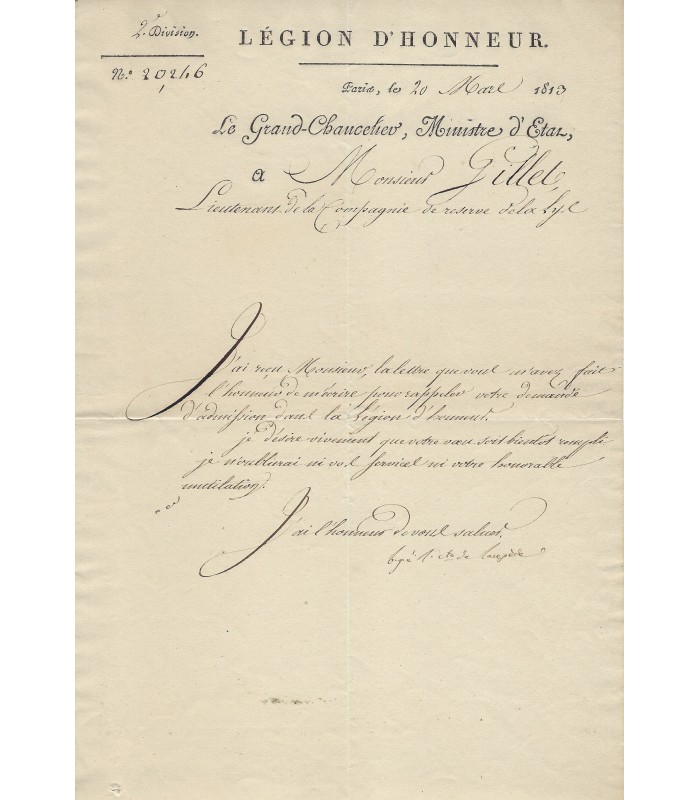 2.e Division.
LÉGION D'HONNEUR.
N.o 20246
Paris, le 20 Mars 1813
Le Grand-Chancelier, Ministre d'Etat,
a Monsieur Gillet,
Lieutenant de la Compagnie de reserve de la Lys
J'ai reçu Monsieur, la lettre que vous m'avez fait
l'honneur de m'écrire pour rappeler votre demande
d'admission dans la Légion d'honneur.
je désire vivement que votre vœu soit bientôt rempli
je n'oublirai ni vos services ni votre honorable
mutilation.
J'ai l'honneur de vous saluer.
de Lacepède